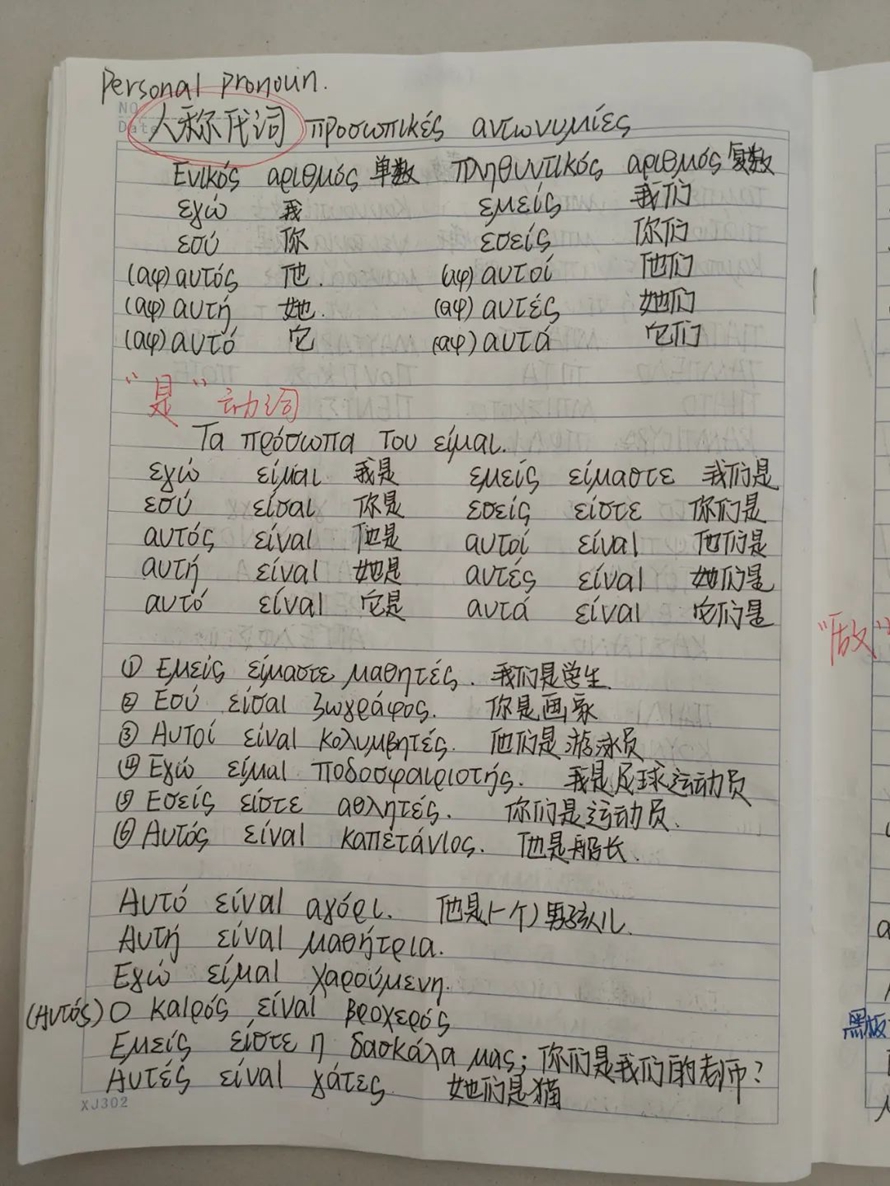 Personal pronoun.
NO
Date
人称代词 προσωπικές αντωνυμίες
Ενικός αριθμός 单数 πληθυντικός αριθμός 复数
εγώ 我 εμείς 我们
εσύ 你 εσείς 你们
(αφ) αυτός 他. (αφ) αυτοί 他们
(αφ) αυτή 她. (αφ) αυτές 她们
(αφ) αυτό 它 (αφ) αυτά 它们
"是" 动词
Τα πρόσωπα του είμαι.
εγώ είμαι 我是 εμείς είμαστε 我们是
εσύ είσαι 你是 εσείς είστε 你们是
αυτός είναι 他是 αυτοί είναι 他们是
αυτή είναι 她是 αυτές είναι 她们是
αυτό είναι 它是 αυτά είναι 它们是
"做"
① Εμείς είμαστε μαθητές. 我们是学生.
② Εσύ είσαι ζωγράφος. 你是画家
③ Αυτοί είναι κολυμβητές. 他们是游泳员
④ Εγώ είμαι ποδοσφαιριστής. 我是足球运动员
⑤ Εσείς είστε αθλητές. 你们是运动员.
⑥ Αυτός είναι καπετάνιος. 他是船长.
Αυτό είναι αγόρι. 他是(一个)男孩儿.
Αυτή είναι μαθήτρια.
Εγώ είμαι χαρούμενη.
(Αυτός) Ο καιρός είναι βροχερός
Εμείς είστε η δασκάλα μας; 你们是我们的老师?
Αυτές είναι γάτες. 她们是猫
黑板
XJ302